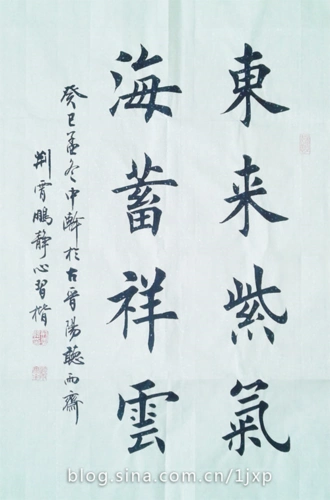 東来紫氣
海蓄祥雲
癸巳孟冬中澣於古晉陽聽雨齋
荆霄鵬靜心習楷
blog.sina.com.cn/1jxp